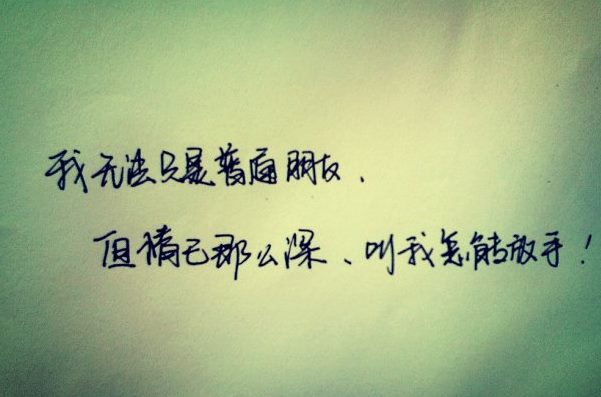 我无法只是普通朋友.
但情已那么深、叫我怎能放手！